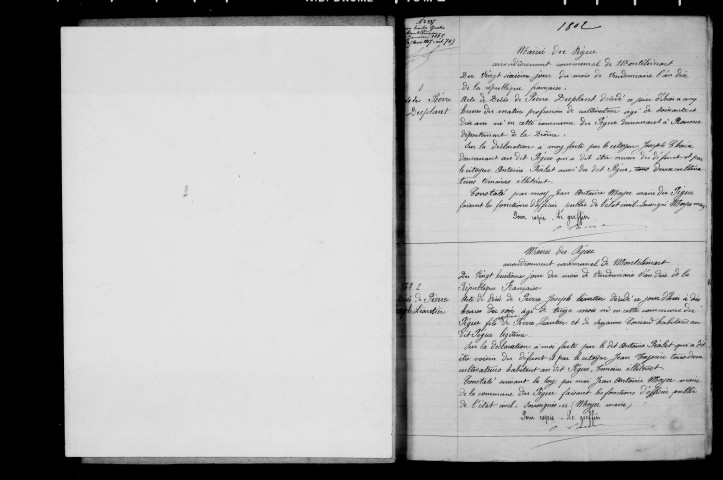 1802
Mairie du Pègue
arrondissement communal de Montélimart
Du vingt sixième jour du mois de Vendemiaire l'an dix
de la république française.
1
Acte de Décès de Pierre Desplant décédé ce jour d'hier a cinq
Pierre
Desplant
heures du matin profession de cultivateur agé de soixante et
dix ans né en cette commune du Pègue demeurant à
département de la Drôme.
Sur la déclaration à moy faite par le citoyen Joseph
demeurant au dit Pègue qui a dit être neveu du défunt et par
le citoyen Antoine Pialet aussi du dit Pègue, tous deux
témoins illitérés.
Constaté par moy Jean Antoine Moyer maire du Pègue
faisant les fonctions d'officier public de l'état civil. Soussigné Moyer maire
Pour copie - Le greffier
Mairie du Pègue
arrondissement communal de Montélimart
Du vingt huitième jour du mois de Vendemiaire l'an dix de la
République Française
2
Acte de décès de Pierre Joseph Liautier décédé ce jour d'hier à dix
décès de Pierre
Joseph Liautier
heures du soir agé de treize mois né en cette commune du
Pègue fils de Pierre Liautier et de Suzanne habitans au
dit Pègue légitime.
Sur la déclaration à moi faite par le dit Antoine Pialet qui a dit
être voisin du défunt et par le citoyen Jean tous deux
cultivateurs habitant au dit Pègue, témoins illitérés.
Constaté suivant la loy par moi Jean Antoine Moyer maire
de la commune du Pègue faisant les fonctions d'officier public
de l'état civil. Soussigné (Moyer maire)
Pour copie - Le greffier